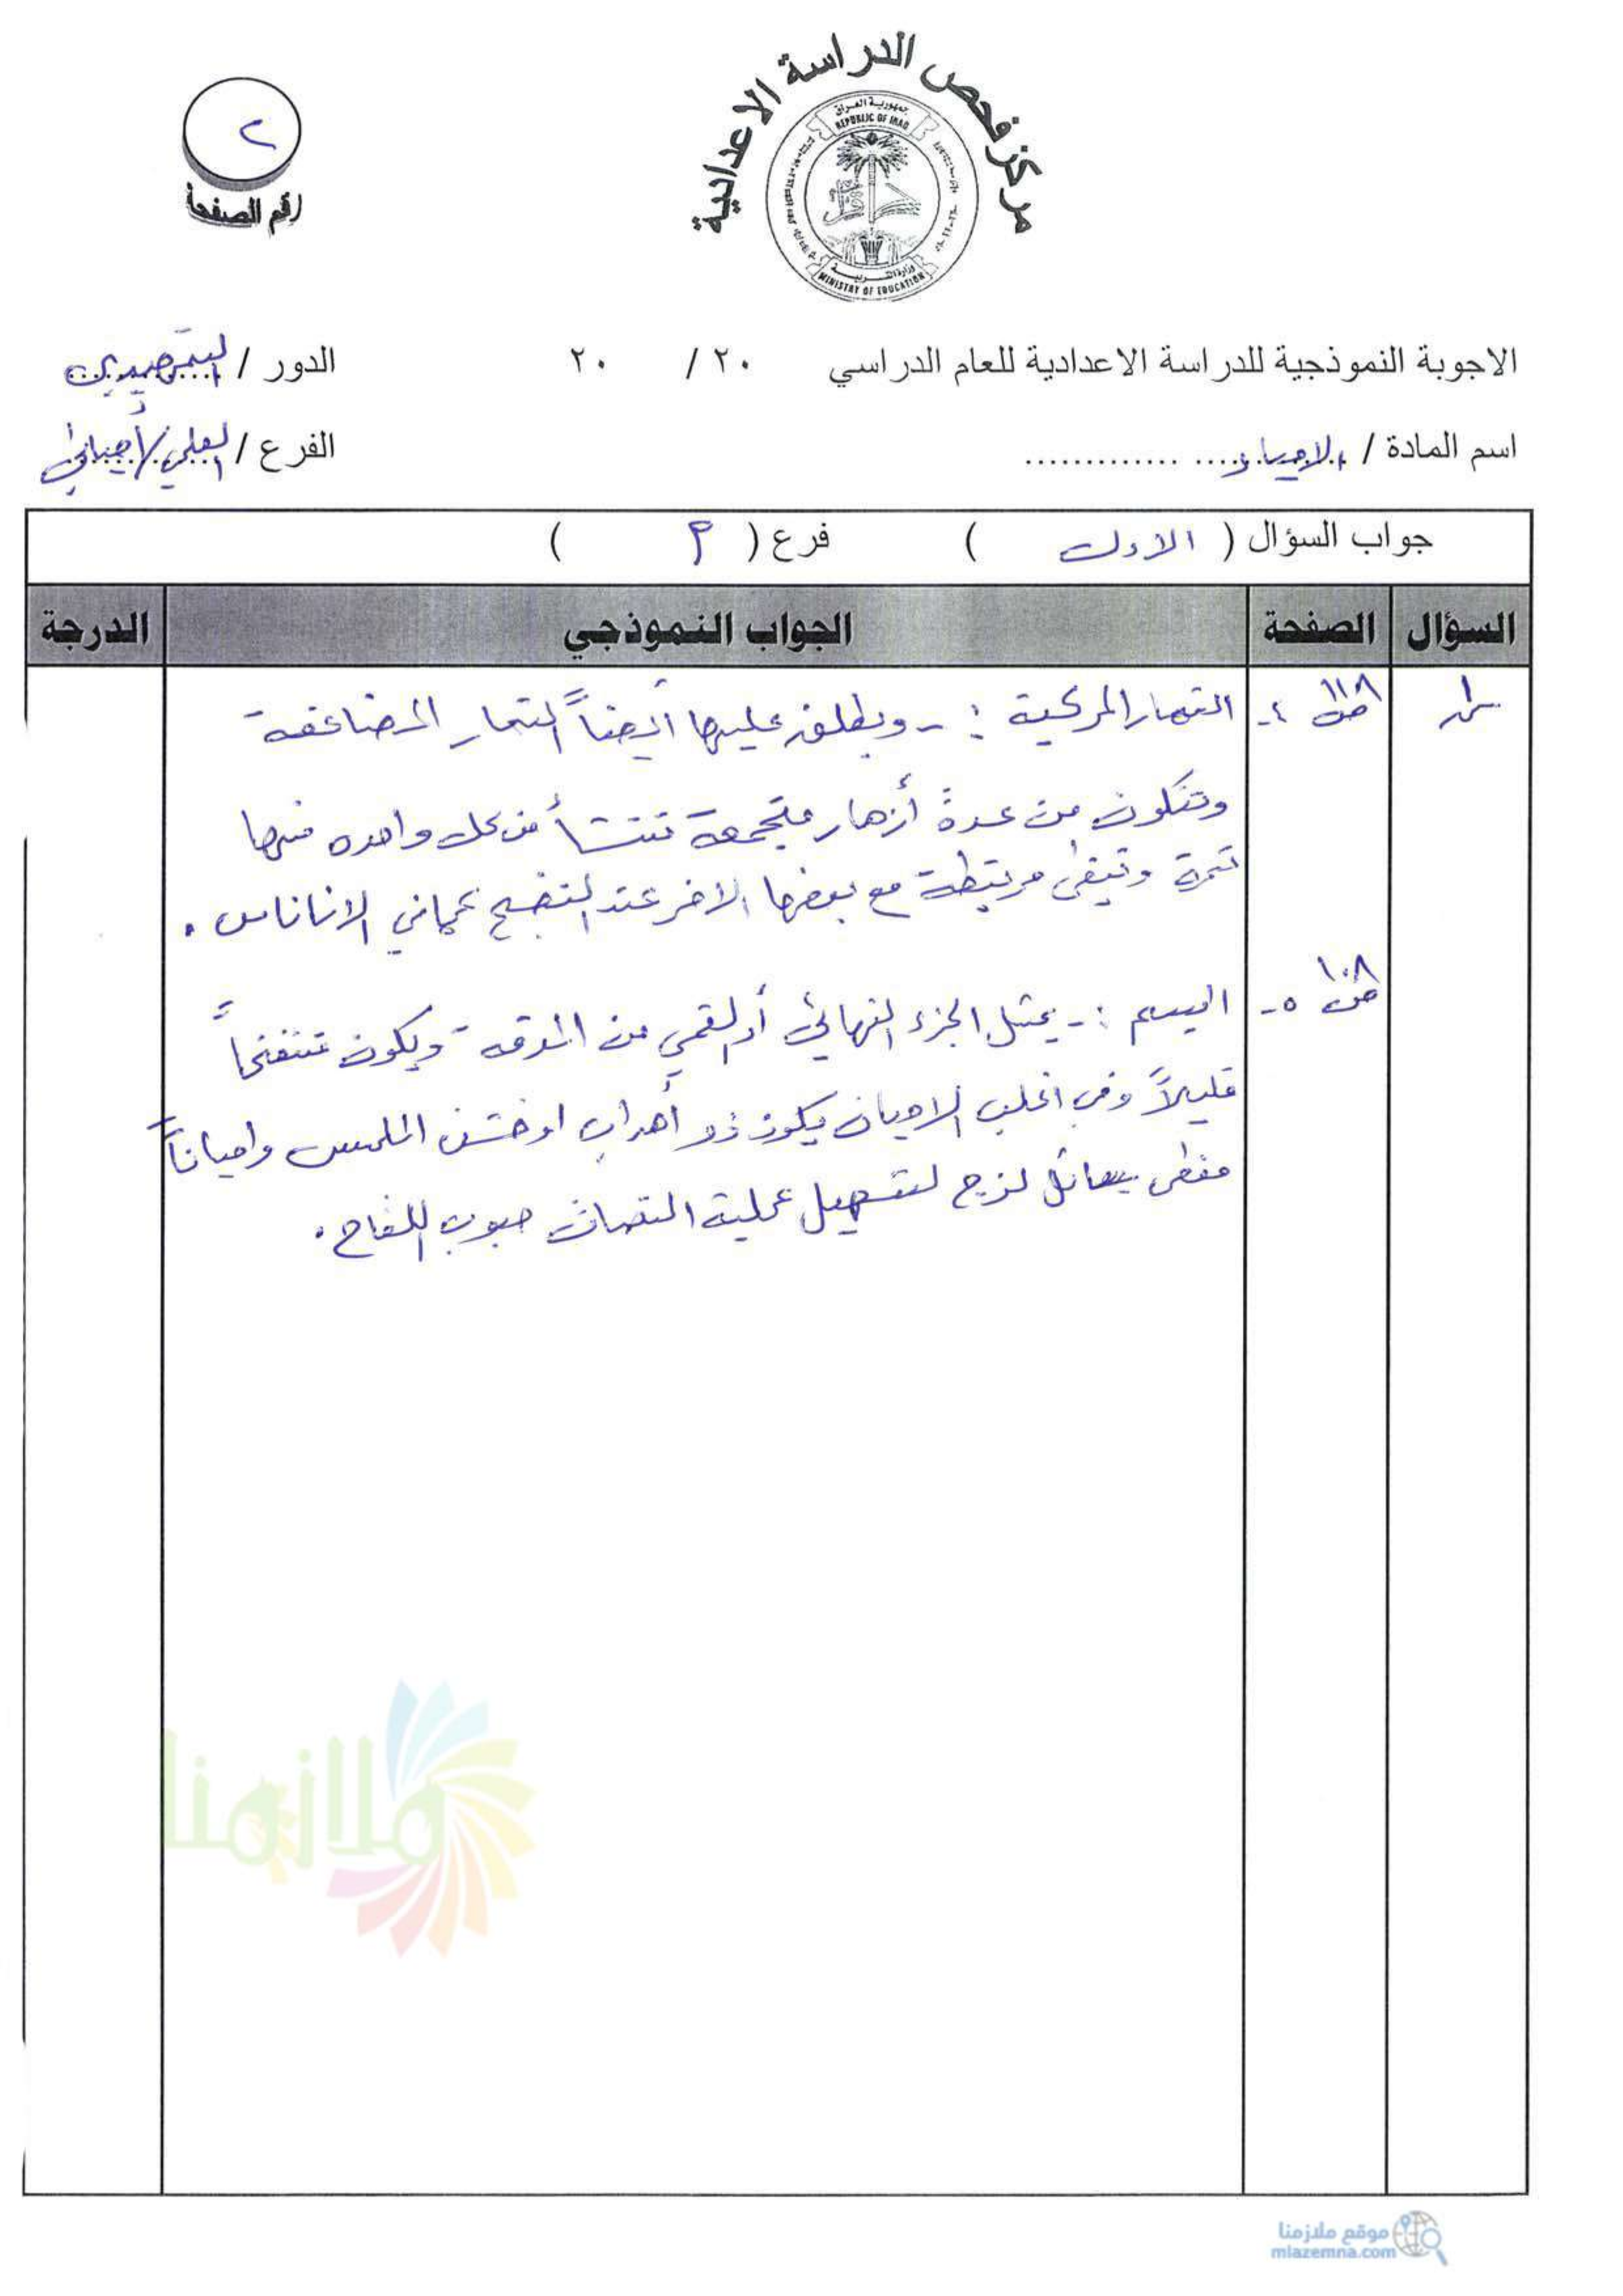 مركز فحص الدراسة الاعدادية
جمهورية العراق
REPUBLIC OF IRAQ
وزارة التربية
MINISTRY OF EDUCATION
٢
رقم الصفحة
الاجوبة النموذجية للدراسة الاعدادية للعام الدراسي ٢٠ / ٢٠ الدور / التمهيدي
اسم المادة / الاحياء الفرع / العلمي / أحيائي
جواب السؤال ( الاول ) فرع ( م )
السؤال الصفحة الجواب النموذجي الدرجة
س١ ص١١٨ ٤- الثمار المركبة :- ويطلق عليها أيضاً الثمار المضاعفة
وتتكون من عدة أزهار متجمعة تنشأ من كل واحده منها
ثمرة وتبقى مرتبطة مع بعضها الاخر عند النضج كما في الاناناس .
ص١٠٨ ٥- الميسم :- يمثل الجزء النهائي أو القمي من المدقة ويكون منتفخاً
قليلاً وفي اغلب الاحيان يكون ذو أهداب او خشن الملمس واحياناً
مغطى بسائل لزج لتسهيل عملية التصاق حبوب اللقاح .
ملازمنا
موقع ملازمنا
mlazemna.com